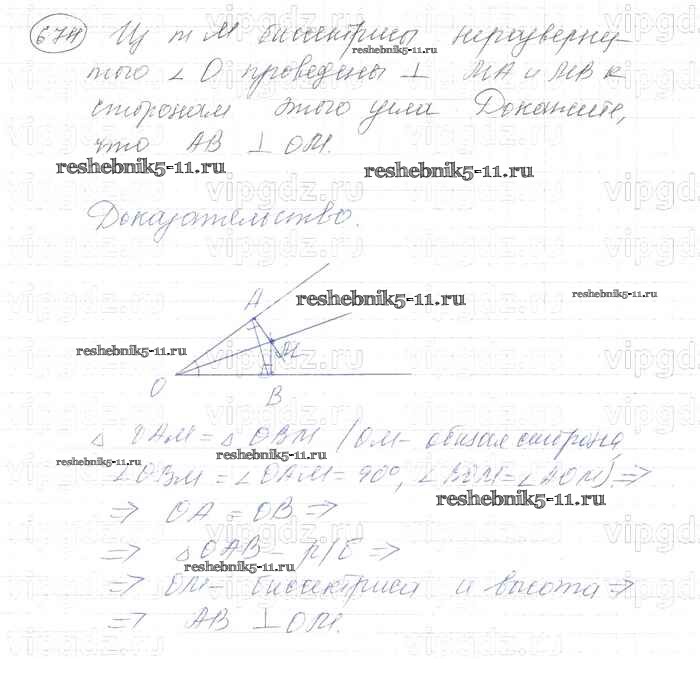 674 Из т М биссектрисы неразверну-
того ∠ O проведены ⊥ MA и MB к
сторонам этого угла Докажите,
что AB ⊥ OM.
reshebnik5-11.ru
Доказательство.
A
M
O
B
△ OAM = △ OBM / OM - общая сторона,
∠OBM = ∠OAM = 90°, ∠BOM = ∠AOM) ⇒
⇒ OA = OB ⇒
⇒ △OAB - р/б ⇒
⇒ OM - биссектриса и высота ⇒
⇒ AB ⊥ OM.
reshebnik5-11.ru
reshebnik5-11.ru
reshebnik5-11.ru
reshebnik5-11.ru
reshebnik5-11.ru
reshebnik5-11.ru
reshebnik5-11.ru
reshebnik5-11.ru
reshebnik5-11.ru
vipgdz.ru